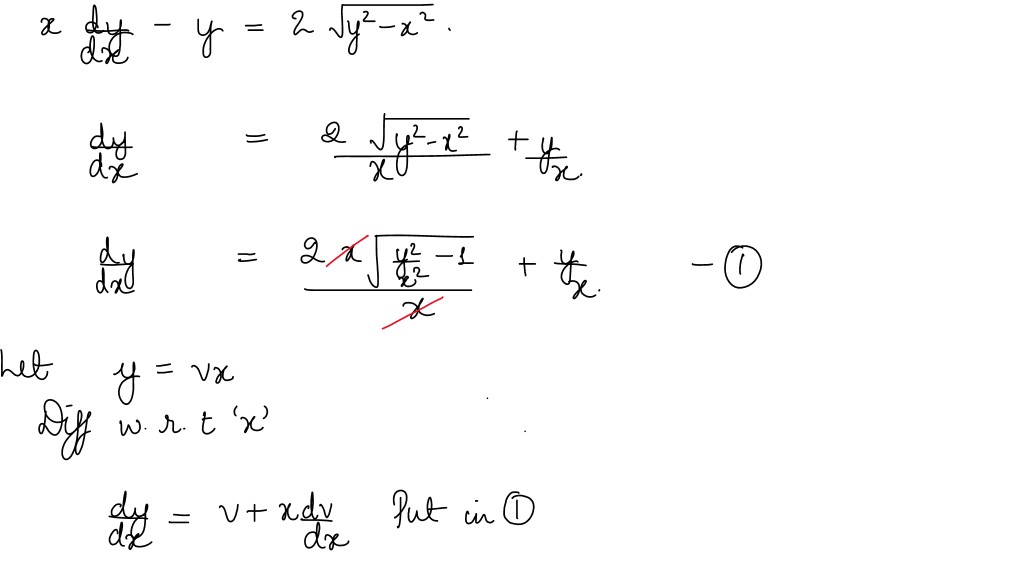 x dy/dx - y = 2 √(y² - x²) .
dy/dx = 2 √(y² - x²) / x + y/x .
dy/dx = 2 x √(y²/x² - 1) / x + y/x . - ①
Let y = vx
Diff w.r.t 'x'
dy/dx = v + x dv/dx Put in ①